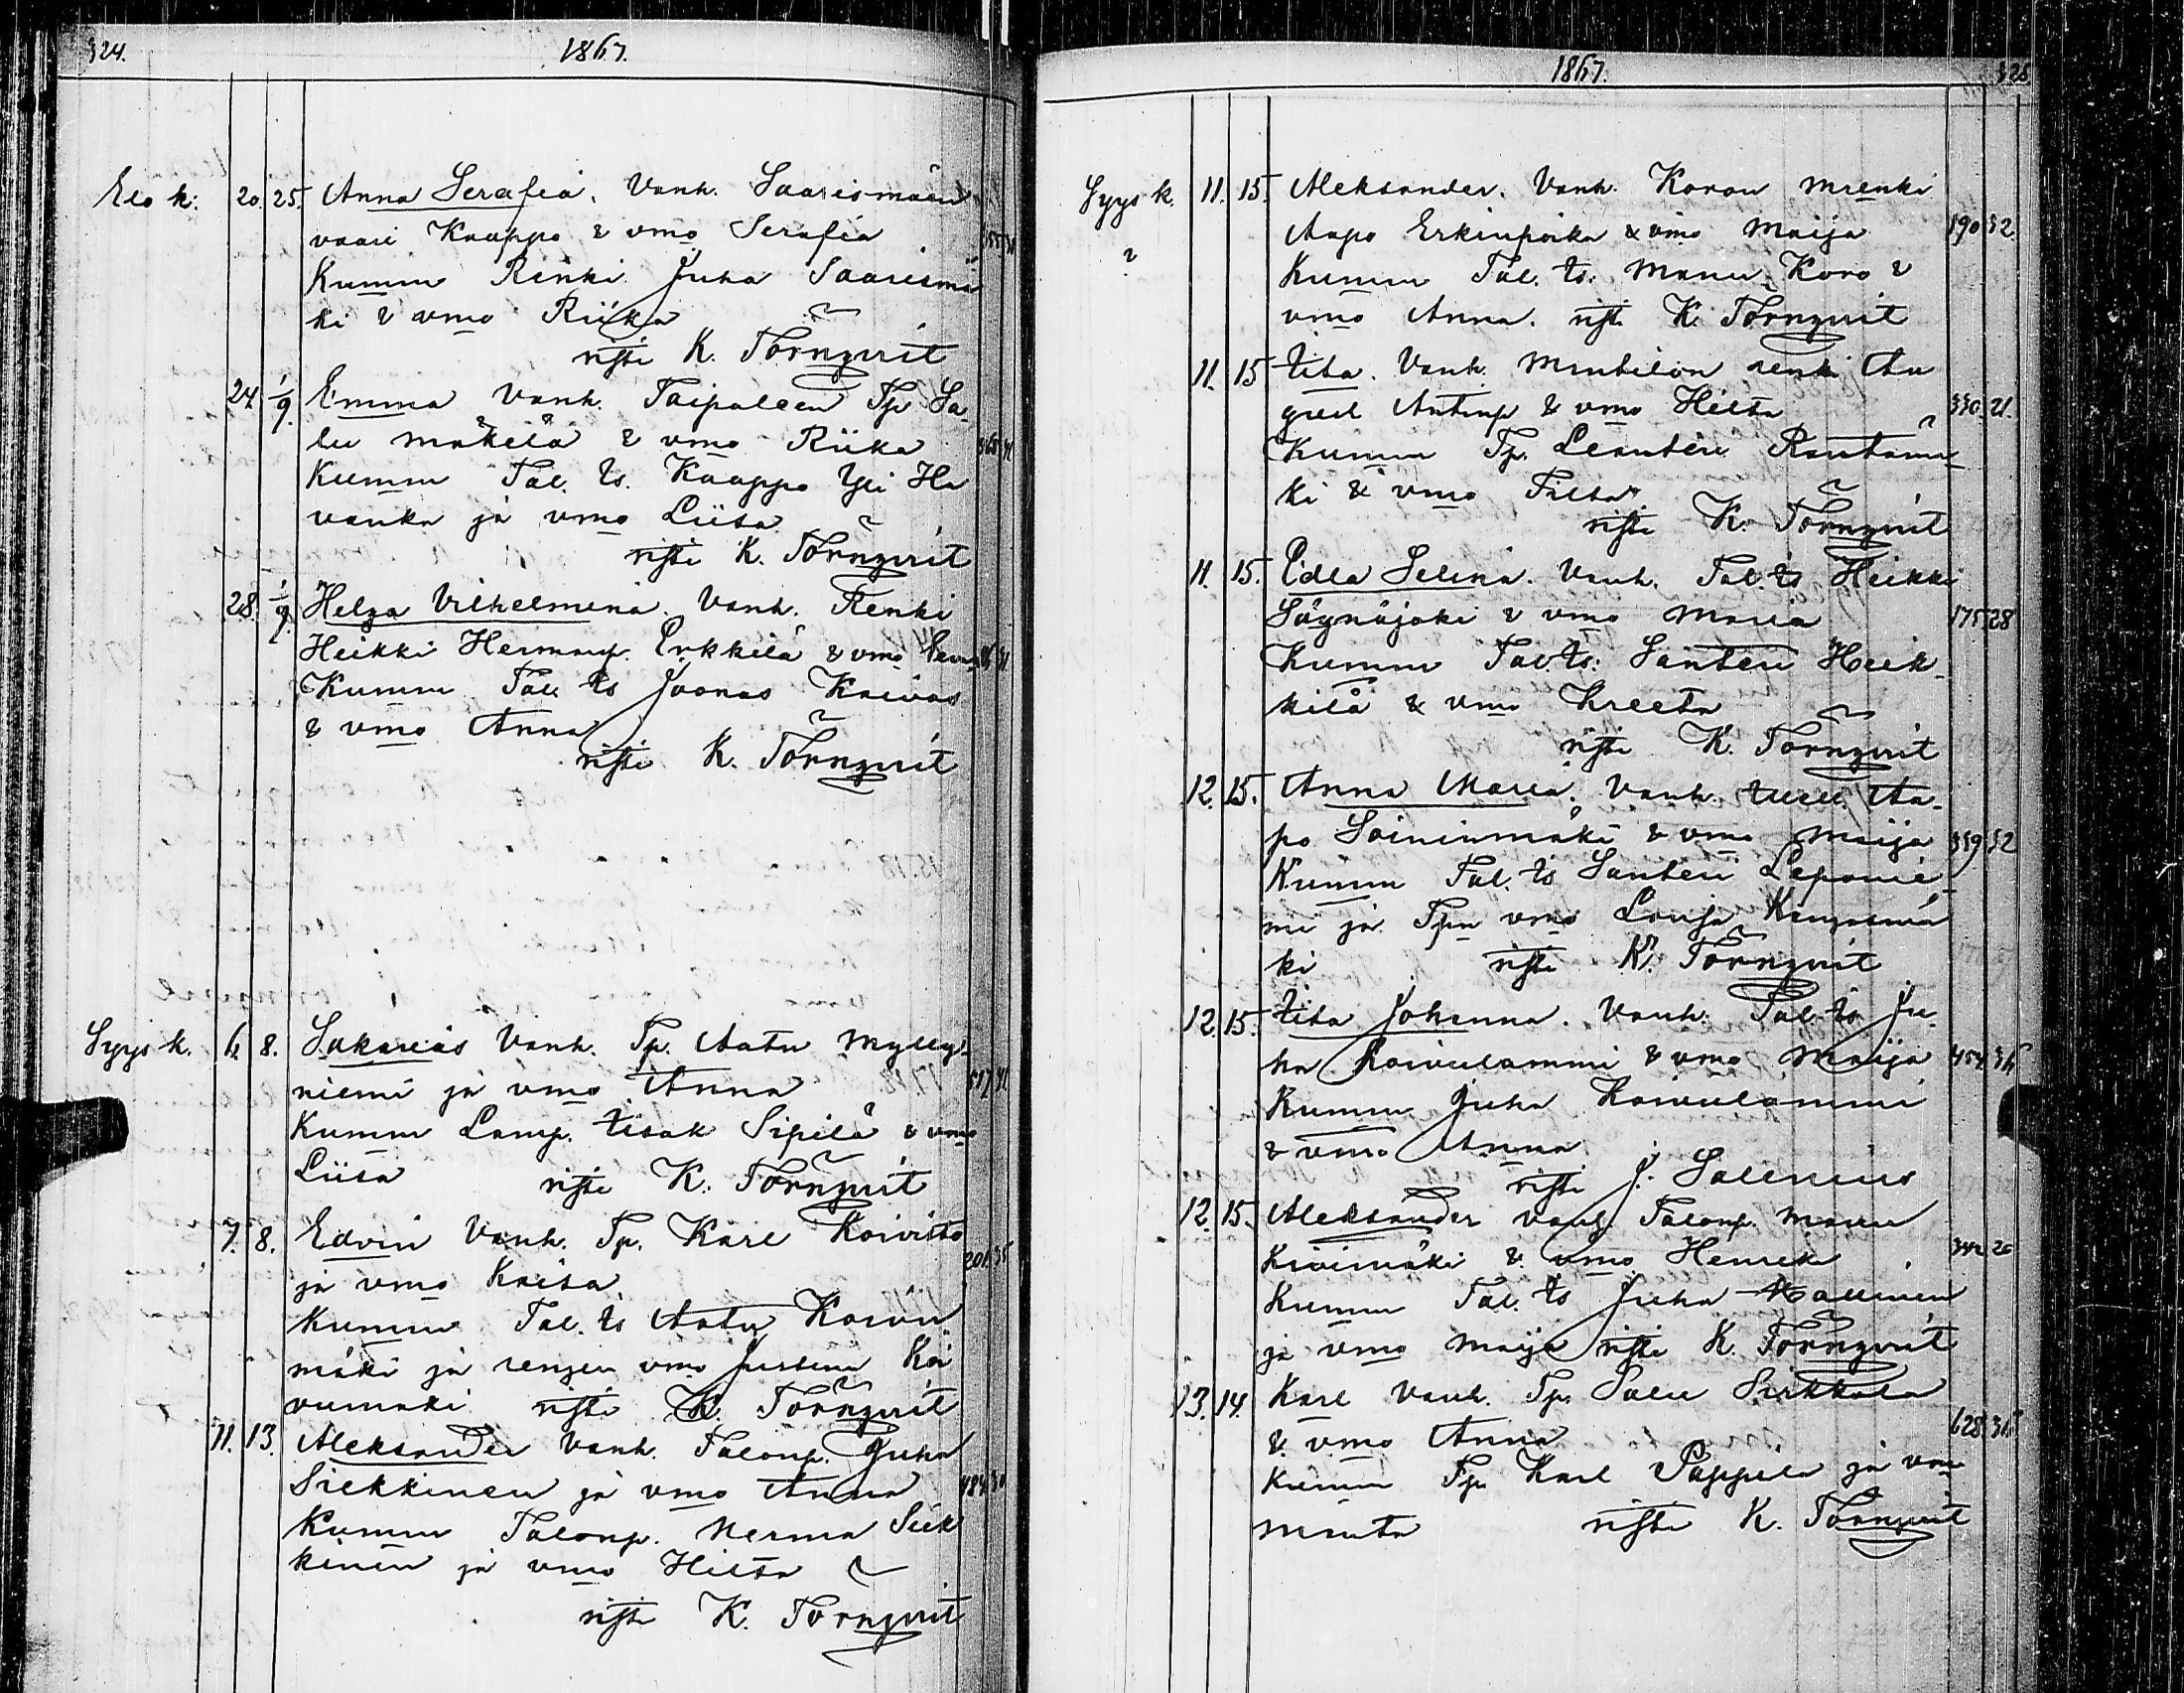 324.
1867.
Elo k. 20. 25. Anna Serafia. Vanh. Saarismäen
vaari Kaappo & vmo Serafia
Kumm Renki Juha Saarismä
ki & vmo Riika
risti K. Törnqvist
24. 1/9. Emma Vanh. Taipaleen Tp. Sa
lu Mäkelä & vmo Riika
Kumm Tal. ts. Kaappo Yli Ha
vanka ja vmo Liisa
risti K. Törnqvist
28. 1/9. Helga Vilhelmina. Vanh. Renki
Heikki Hermanp. Erkkilä & vmo
Kumm Tal. ts Joonas Kaivos
& vmo Anna
risti K. Törnqvist
Syys k. 6. 8. Sakarias Vanh. Tp. Aatu Mylly-
niemi ja vmo Anna
Kumm Lamp. Iisak Sipilä & vmo
Liisa risti K. Törnqvist
7. 8. Edvin Vanh. Tp. Karl Koivisto
ja vmo Kaisa 201. 35
Kumm Tal. ts Aatu Koivu
mäki ja rengin vmo Justina Koi
vumäki risti K. Törnqvist
11. 13. Aleksander Vanh. Talonp. Juha
Siekkinen ja vmo Anna 484
Kumm Talonp. Herma Siek
kinen ja vmo Hilta
risti K. Törnqvist
1867.
Syys k. 11. 15. Aleksander. Vanh. Koron mrenki
Aapo Erkinpoika & vmo Maija 190 32.
Kumm Tal. ts. Manu Koro &
vmo Anna. risti K. Törnqvist
11. 15 Iita. Vanh. Mantilan renki Au
gust Antinp & vmo Hilta 330 21.
Kumm Tp. Leanteri Rantamä
ki & vmo
risti K. Törnqvist
11. 15. Edla Selina. Vanh. Tal. ts Heikki
Säynäjoki & vmo Maria 175 28
Kumm Tal. ts. Santeri Heik-
kilä & vmo Kreeta
risti K. Törnqvist
12. 15. Anna Maria. Vanh. Aa-
po Soininmäki & vmo Maija 339 32
Kumm Tal. ts Santeri Leponie
mi ja Tpn vmo Lovisa Kangasmä
ki risti K. Törnqvist
12. 15. Iita Johanna. Vanh. Tal. ts Ju
ha Koivulammi & vmo Maija 454 36
Kumm Juha Koivulammi
& vmo Anna
risti J. Salenius
12. 15. Aleksander Vanh. Talonp. Manu
Kivimäki & vmo Henrik 342 26
Kumm Tal. ts Juha Kallinen
ja vmo Maija risti K. Törnqvist
13. 14. Karl Vanh. Tp. Salu Sirkkala
& vmo Anna 628
Kumm Tp. Karl Pappila ja vmo
Manta risti K. Törnqvist